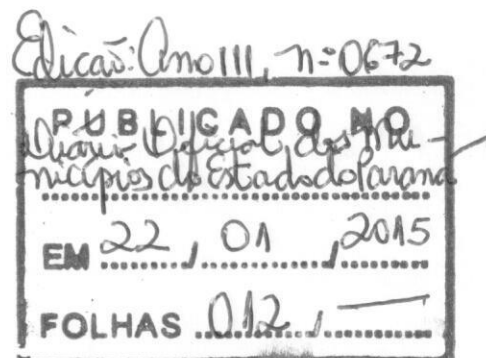 Edição: Ano III, nº 0672
PUBLICADO NO
Diário Oficial dos Mu-
nicípios do Estado do Paraná
EM 22 / 01 / 2015
FOLHAS 012 / —